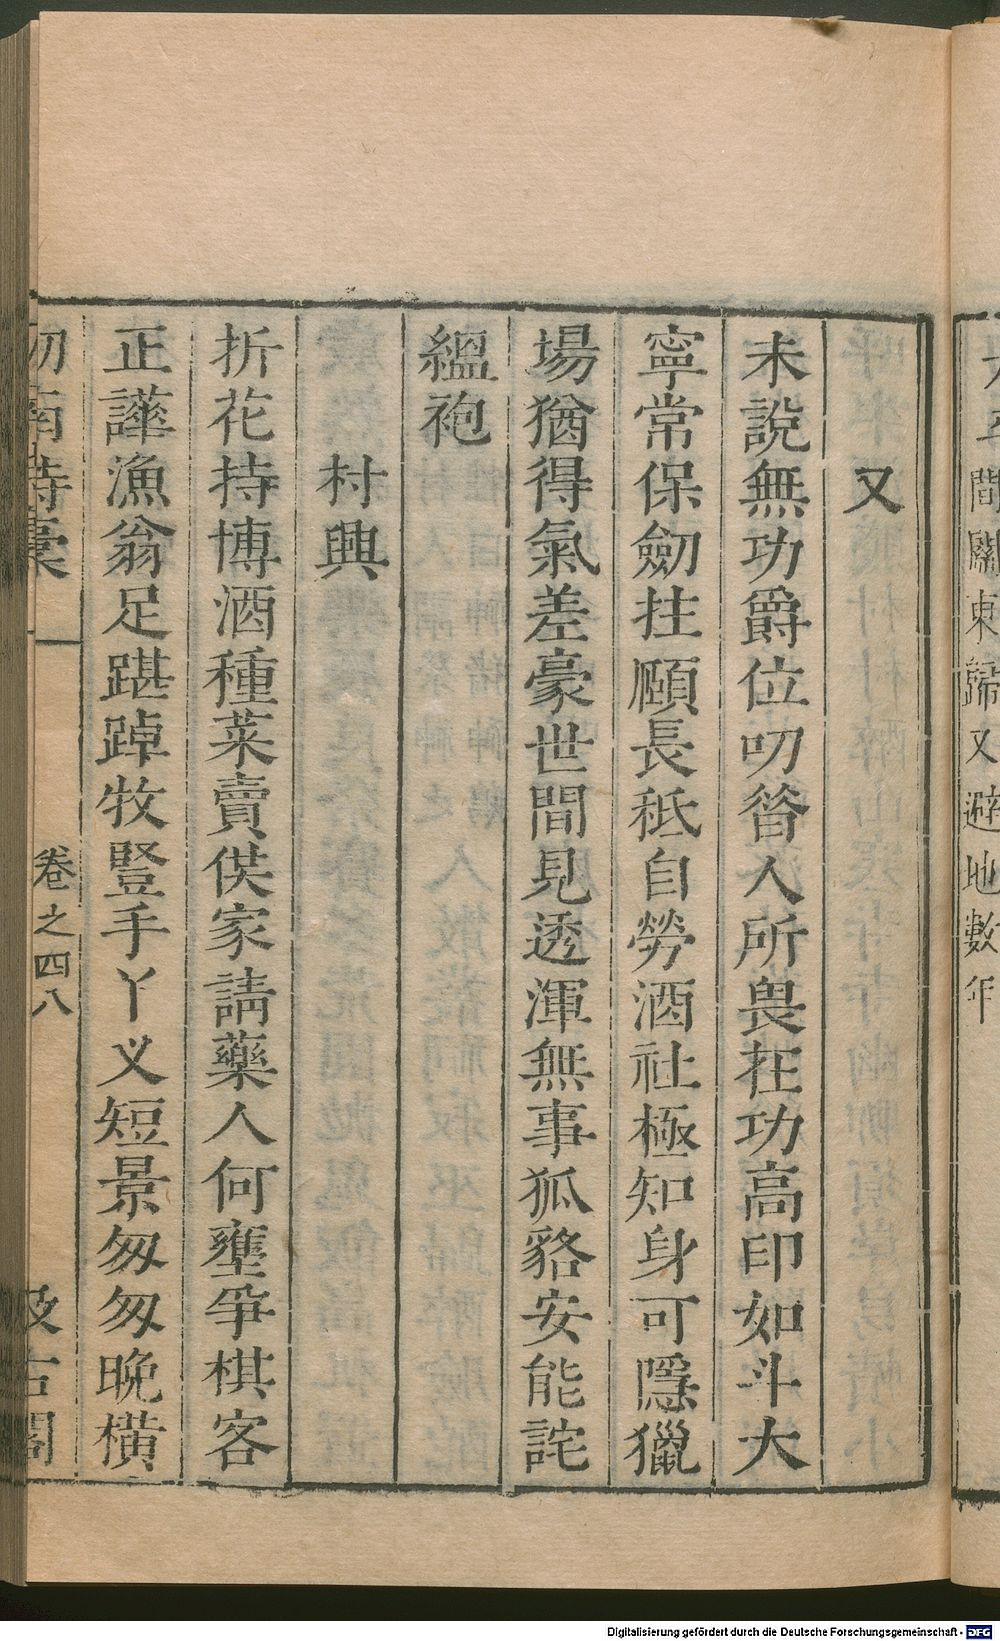 間關東歸又避地數年
又
未說無功爵位叨眥人所畏在功高印如斗大
寧常保劒拄頤長秪自勞酒社極知身可隱獵
場猶得氣差豪世間見透渾無事狐貉安能詫
緼袍
村興
折花持博酒種菜賣供家請藥人何壅爭棋客
正譁漁翁足踸踔牧豎手丫义短景匆匆晚橫
劒南詩稾
卷之四八
汲古閣
Digitalisierung gefördert durch die Deutsche Forschungsgemeinschaft - DFG